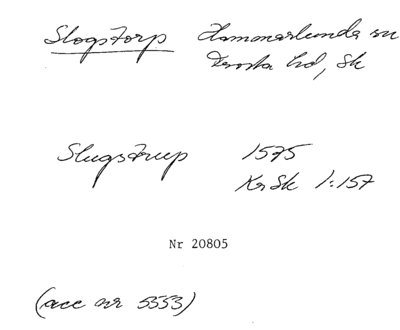 Slogstorp Hammarlunda sn
Frosta hd, Sk
Slugstrup 1575
Kr Sk 1:157
Nr 20805
(acc nr 5553)